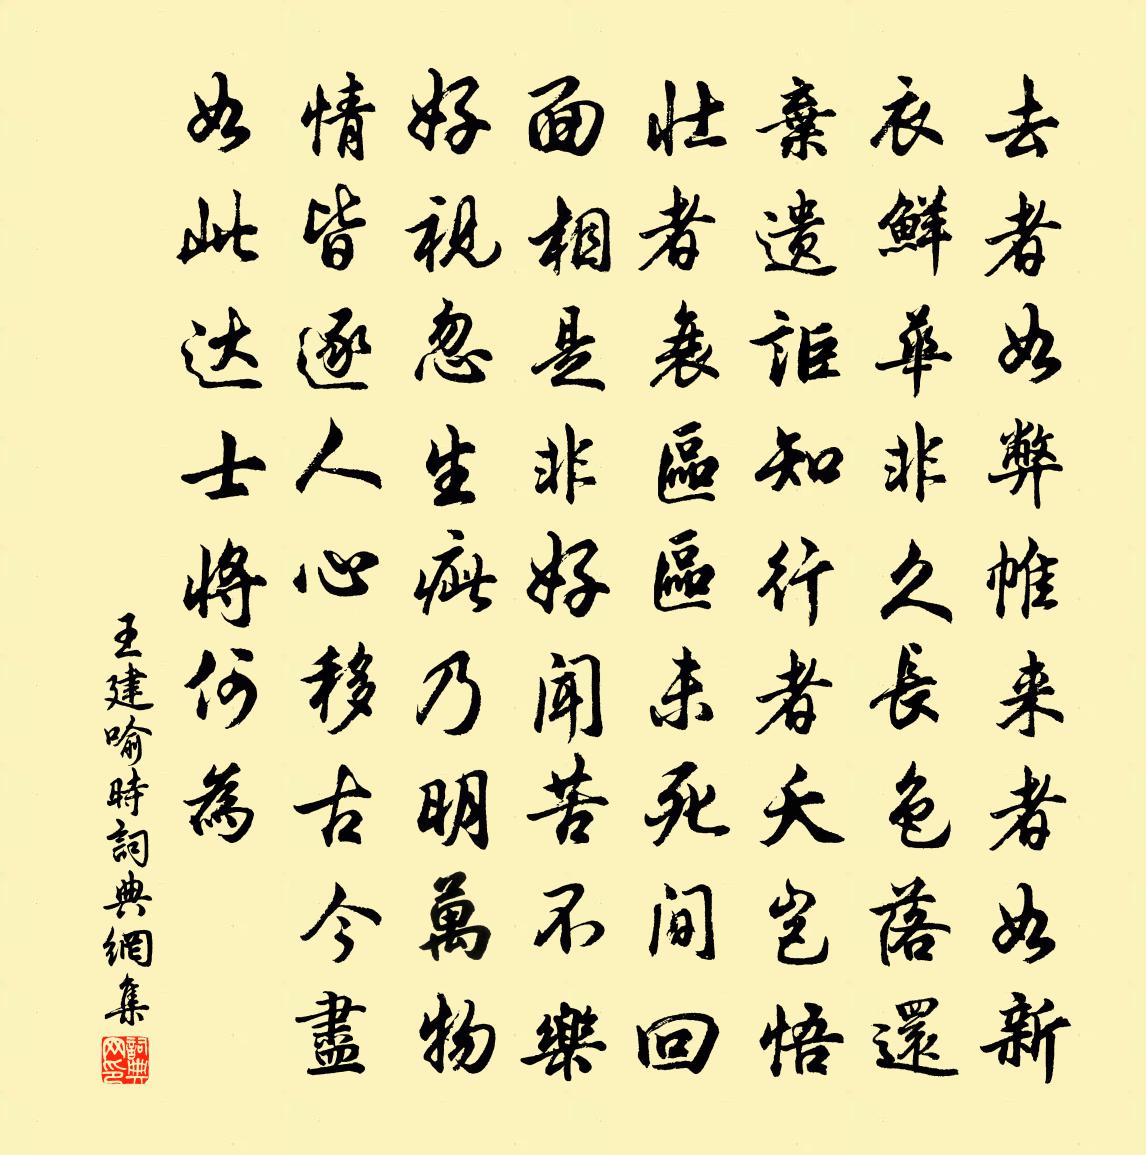 去者如弊帷来者如新
衣鮮華非久長色落還
棄遺詎知行者夭豈悟
壮者衰區區未死間回
面相是非好聞苦不樂
好視忽生疵乃明萬物
情皆逐人心移古今盡
如此达士将何為
王建喻時詞典網集
詞典网印